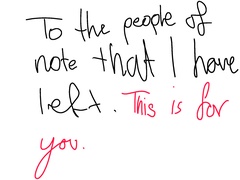 To the people of
note that I have
left. This is for
you.